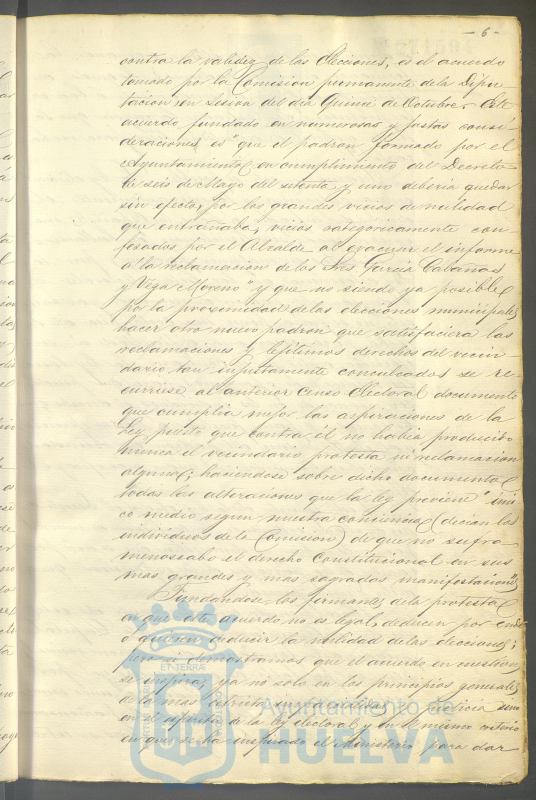 - 6 -
contra la validez de las Elecciones, es el acuerdo
tomado por la Comision permanente de la Dipu-
tacion en Sesion del dia Quince de Octubre. Este
acuerdo fundado en numerosas y justas consi-
deraciones es "que el padron formado por el
Ayuntamiento en cumplimiento del Decreto
de seis de Mayo del setenta y uno deberia quedar
sin efecto, por los grandes vicios de nulidad
que entrañaba, vicios categoricamente con-
fesados por el Alcalde al evacuar el informe
a la reclamacion de los Sres Garcia Cabañas
y Vega Moreno" y que no siendo ya posible
por la proximidad de las elecciones municipales
hacer otro nuevo padron que satisfaciera las
reclamaciones y legitimos derechos del vecin-
dario tan injustamente conculcados se re-
curriese al anterior censo electoral documento
que cumplia mejor las aspiraciones de la
Ley puesto que contra él no habia producido
nunca el vecindario protesta ni reclamacion
alguna; haciendose sobre dicho documento
todas las alteraciones que la ley previene "uni-
co medio segun nuestra conciencia (decian los
individuos de la Comision) de que no sufra
menoscabo el derecho Constitucional en sus
mas grandes y mas sagradas manifestaciones"
Fundandose los firmantes de la protesta
en que este acuerdo no es legal, deducen por ende
o quieren deducir la nulidad de las elecciones;
pero si demostramos que el acuerdo en cuestion
se inspira, ya no solo en los principios generales
de la mas estricta y acrisolada justicia sino
en el espiritu de la ley electoral y en el mismo criterio
en que se ha inspirado el Ministerio para dar
ET TERRÆ
Ayuntamiento de
HUELVA